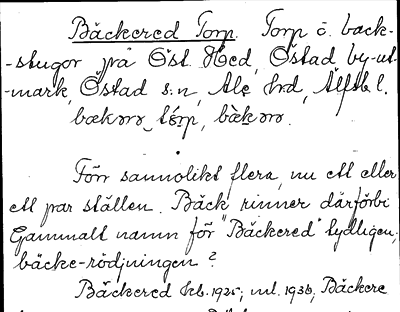 Bäckered Torp. Torp o. back-
-stugor på Öst. Hed, Östad by-ut-
-mark, Östad s:n, Ale hrd, Älfsb l.
bækərə tɷrp, bækərə.
Förr sannolikt flera, nu ett eller
ett par ställen. Bäck rinner därförbi
Gammalt namn för "Bäckered" tydligen,
bäcke-rödjningen?
Bäckered kb. 1925; ml. 1938; Bäckere